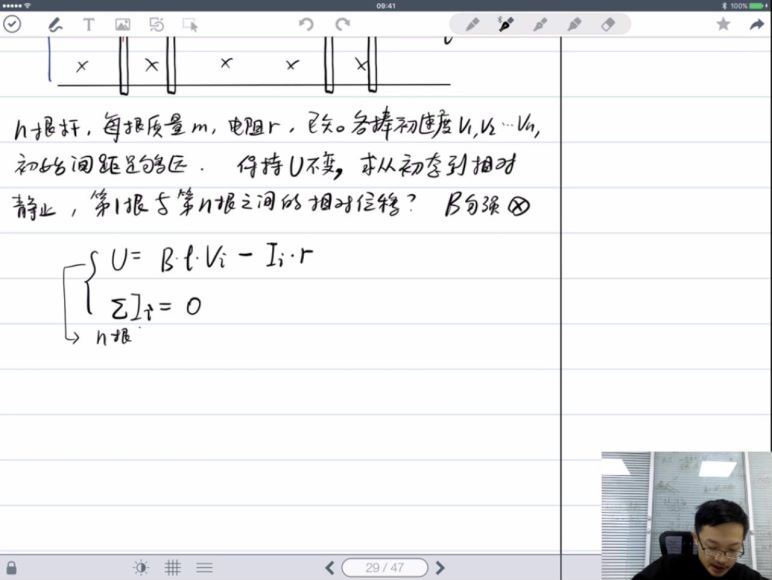 09:41
100%
T
× × × × ×
n根杆，每根质量m，电阻r，已知。各棒初速度V₁,V₂…Vn,
初始间距足够远. 保持U不变，求从初态到相对
静止，第1根与第n根之间的相对位移？ B匀强⊗
U= B·l·Vi − Ii·r
ΣIi= 0
n根
29 / 47